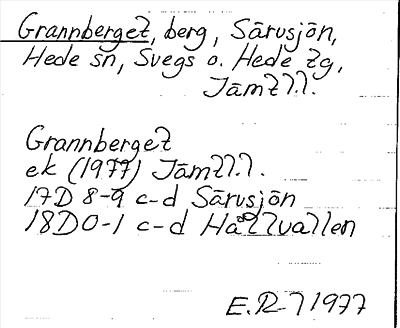 Grannberget, berg, Särvsjön,
Hede sn, Svegs o. Hede tg,
Jämtl.l.
Grannberget
ek (1977) Jämtl.l.
17D 8-9 c-d Särvsjön
18D0-1 c-d Hållvallen
E.R-l 1977